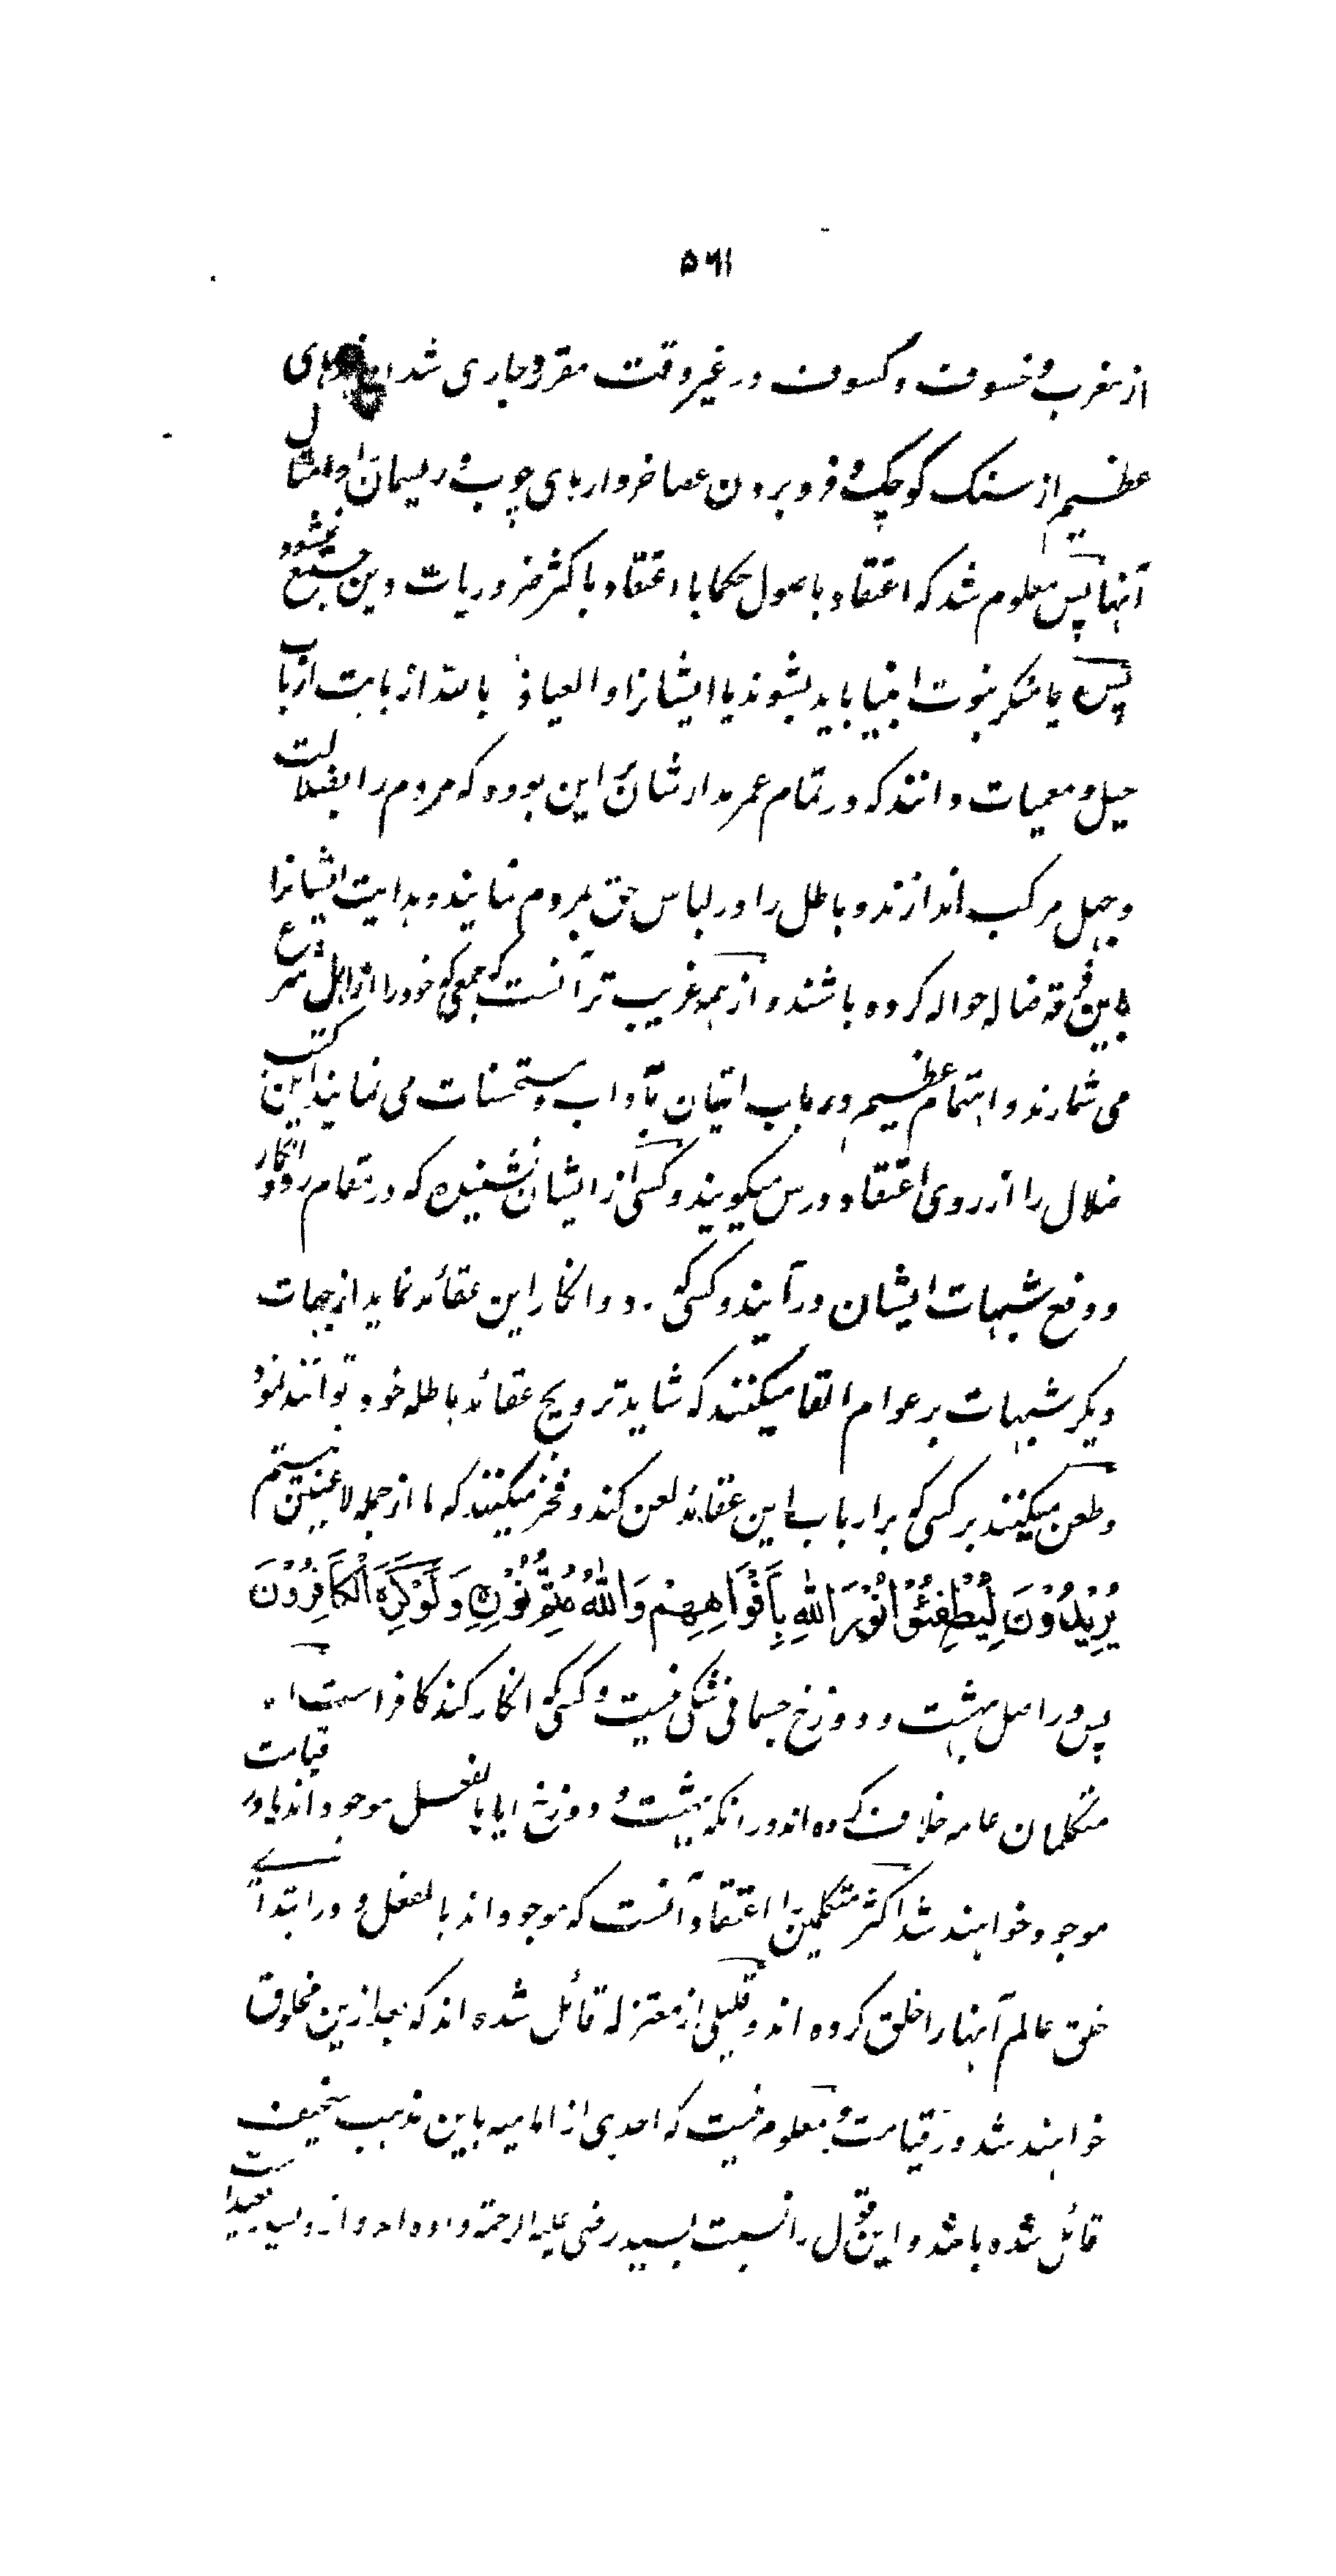 ۵۶۱
از مغرب و خسوف و کسوف در غیر وقت مقرر و جاری شدن نهرهای
عظیم از سنک کوچک و فرو بردن عصا خروارهای چوب و ریسمان و امثال
آنها پس معلوم شد که اعتقاد باصول حکما با اعتقاد باکثر ضروریات دین جمع نمیشود
پس یا منکر نبوت انبیا باید بشوند یا ایشانرا و العیاذ بالله از بابت ارباب
حیل و معمیات دانند که در تمام عمر مدار شان این بوده که مردم را بضلالت
و جهل مرکب اندازند و باطل را در لباس حق بمردم نمایند و هدایت ایشانرا
باین فرقه ضاله حواله کرده باشند و از همه غریب تر آنست که جمعی که خود را از اهل شرع
می شمارند و اهتمام عظیم در باب اتیان بآداب و مستحسنات می نمایند این کتب
ضلال را از روی اعتقاد درس میکویند و کسی از ایشان نشنیده که در مقام رد و انکار
و دفع شبهات ایشان در آیند و کسی که رد و انکار این عقائد نماید از جهات
دیکر شبهات بر عوام القا میکنند که شاید ترویج عقائد باطله خود توانند نمود
و طعن میکنند بر کسی که بر ارباب این عقائد لعن کند و فخر میکنند که ما از جمله لاعنین نیستم
یُرِیْدُوْنَ لِیُطْفِئُوْا نُوْرَ اللهِ بِاَفْوَاهِهِمْ وَاللهُ مُتِمُّ نُوْرِهٖ وَلَوْ کَرِهَ الْکَافِرُوْنَ
پس در اصل بهشت و دوزخ جسمانی شکی نیست و کسی که انکار کند کافر است
متکلمان عامه خلاف کرده اند در انکه بهشت و دوزخ ایا بالفعل موجود اند یا در قیامت
موجود خواهند شد اکثر متکلمین را اعتقاد آنست که موجود اند بالفعل و در ابتدای
خلق عالم آنها را خلق کرده اند و قلیلی از معتزله قائل شده اند که بعد ازین مخلوق
خواهند شد در قیامت و معلوم نیست که احدی از امامیه باین مذهب سخیف
قائل شده باشد و این قول را نسبت بسید رضی علیه الرحمة داده اند و از و بسیار بعید است